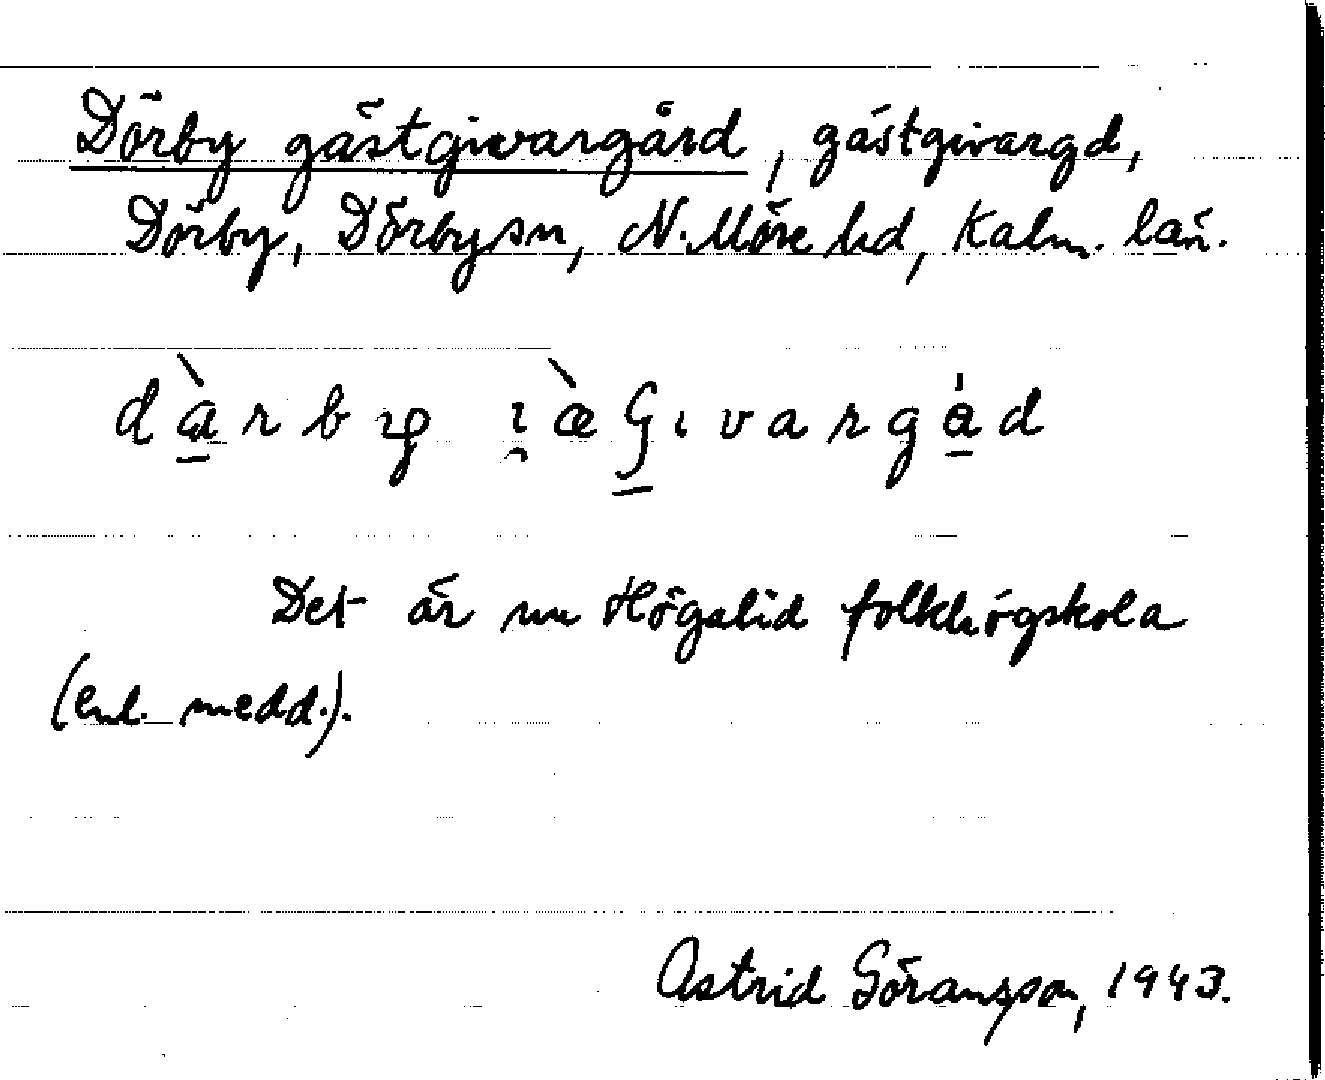 Dörby gästgivargård, gästgivargd,
Dörby, Dörbysn, N. Möre hd, Kalm. län.
Det är nu Högalid folkhögskola
(enl. medd.).
Astrid Göransson, 1943.